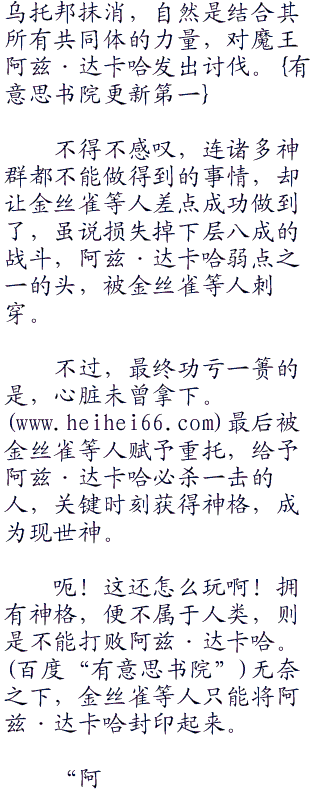 乌托邦抹消，自然是结合其
所有共同体的力量，对魔王
阿兹·达卡哈发出讨伐。{有
意思书院更新第一}
不得不感叹，连诸多神
群都不能做得到的事情，却
让金丝雀等人差点成功做到
了，虽说损失掉下层八成的
战斗，阿兹·达卡哈弱点之
一的头，被金丝雀等人刺
穿。
不过，最终功亏一篑的
是，心脏未曾拿下。
(www.heihei66.com)最后被
金丝雀等人赋予重托，给予
阿兹·达卡哈必杀一击的
人，关键时刻获得神格，成
为现世神。
呃！这还怎么玩啊！拥
有神格，便不属于人类，则
是不能打败阿兹·达卡哈。
(百度“有意思书院”)无奈
之下，金丝雀等人只能将阿
兹·达卡哈封印起来。
“阿